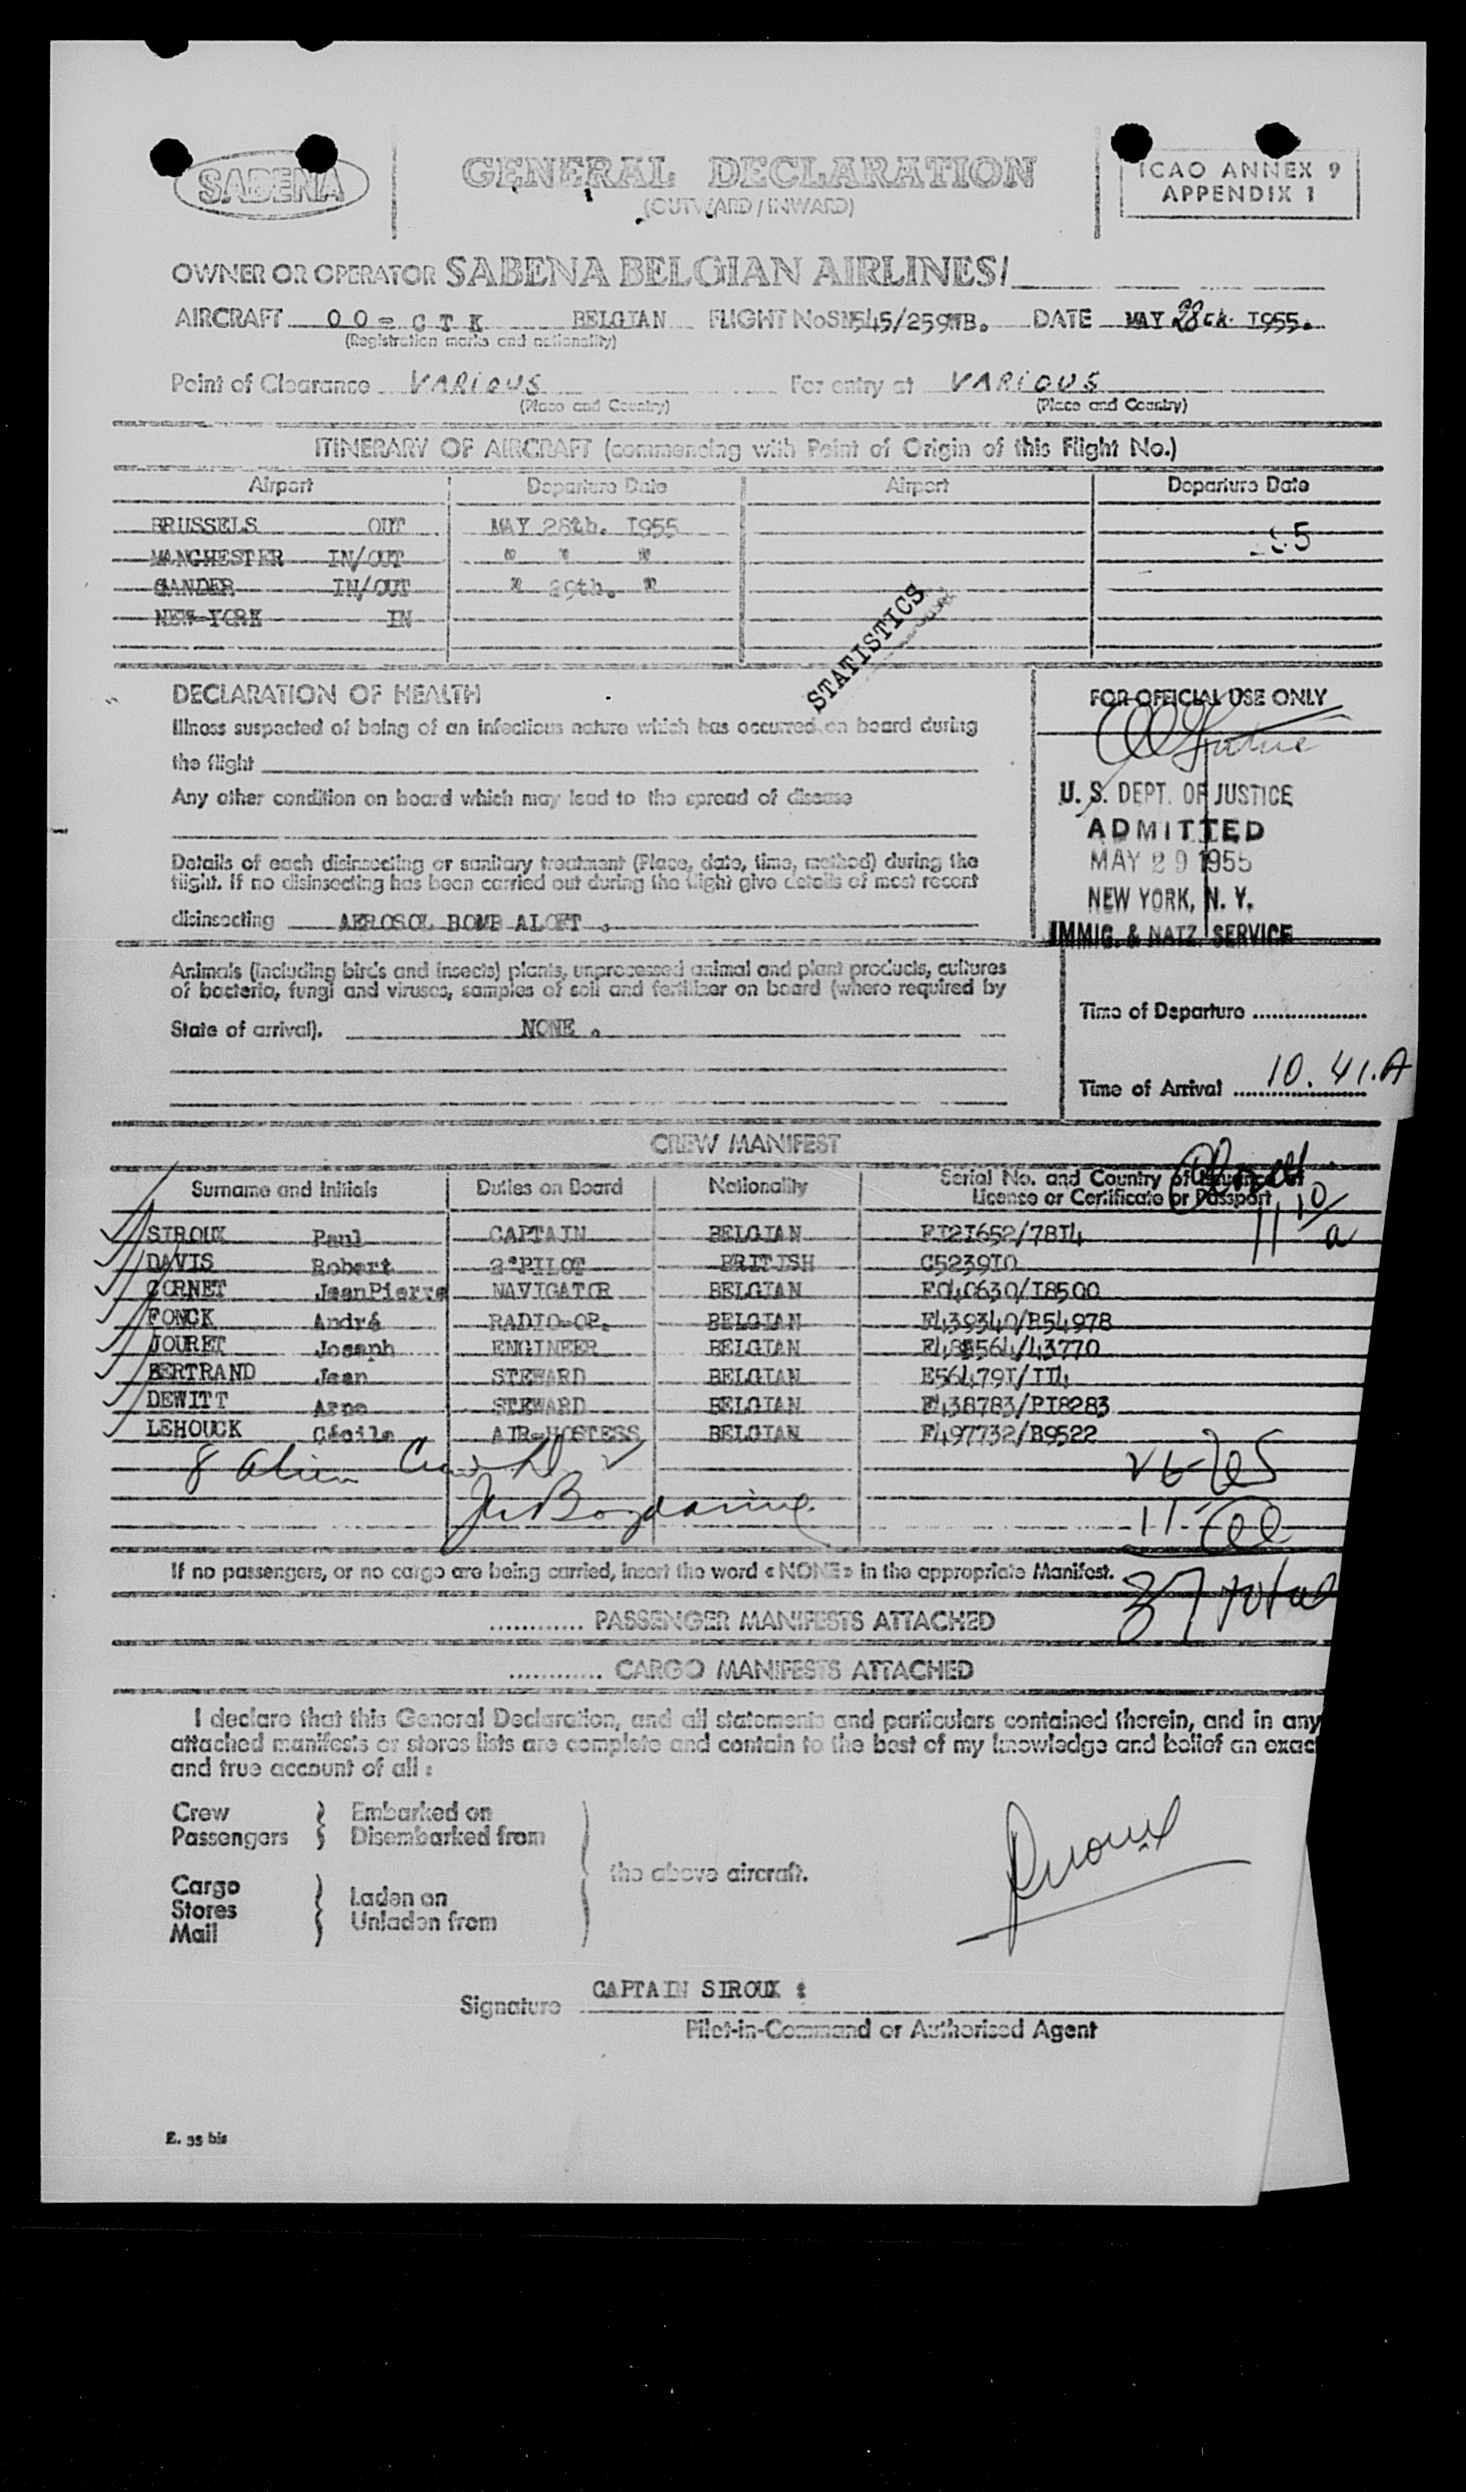 SABENA
GENERAL DECLARATION
(OUTWARD / INWARD)
ICAO ANNEX 9
APPENDIX 1
OWNER OR OPERATOR SABENA BELGIAN AIRLINES/
AIRCRAFT OO - CTK BELGIAN FLIGHT No SN545/259 DATE MAY 28th 1955.
(Registration marks and nationality)
Point of Clearance VARIOUS For entry at VARIOUS
(Place and Country) (Place and Country)
ITINERARY OF AIRCRAFT (commencing with Point of Origin of this Flight No.)
Airport Departure Date Airport Departure Date
BRUSSELS OUT MAY 28th. I955
MANCHESTER IN/OUT " " "
GANDER IN/OUT " 29th. "
NEW-YORK IN
STATISTICS
DECLARATION OF HEALTH
Illness suspected of being of an infectious nature which has occurred on board during
the flight
Any other condition on board which may lead to the spread of disease
Details of each disinsecting or sanitary treatment (Place, date, time, method) during the
flight. If no disinsecting has been carried out during the flight give details of most recent
disinsecting AEROSOL BOMB ALOFT .
FOR OFFICIAL USE ONLY
U. S. DEPT. OF JUSTICE
ADMITTED
MAY 29 1955
NEW YORK, N. Y.
IMMIG. & NATZ. SERVICE
Animals (including birds and insects) plants, unprocessed animal and plant products, cultures
of bacteria, fungi and viruses, samples of soil and fertilizer on board (where required by
State of arrival). NONE .
Time of Departure
Time of Arrival 10.41.A
CREW MANIFEST
Surname and Initials Duties on Board Nationality Serial No. and Country of Issuance of
License or Certificate or Passport
11 10/a
SIROUX Paul CAPTAIN BELGIAN EI2I652/78I4
DAVIS Robert 2°PILOT BRITISH C5239IO
CORNET JeanPierre NAVIGATOR BELGIAN E040630/I8500
FONCK André RADIO-OP. BELGIAN E439340/B54978
JOURET Joseph ENGINEER BELGIAN /43770
BERTRAND Jean STEWARD BELGIAN E56479I/II4
DEWITT Arno STEWARD BELGIAN E438783/PI8283
LEHOUCK Cécile AIR-HOSTESS BELGIAN E497732/B9522
8 Alien Crew
37 total
If no passengers, or no cargo are being carried, insert the word «NONE» in the appropriate Manifest.
............ PASSENGER MANIFESTS ATTACHED
............ CARGO MANIFESTS ATTACHED
I declare that this General Declaration, and all statements and particulars contained therein, and in any
attached manifests or stores lists are complete and contain to the best of my knowledge and belief an exac
and true account of all :
Crew
Passengers
Embarked on
Disembarked from
Cargo
Stores
Mail
Laden on
Unladen from
the above aircraft.
Siroux
Signature CAPTAIN SIROUX :
Pilot-in-Command or Authorised Agent
E. 35 bis